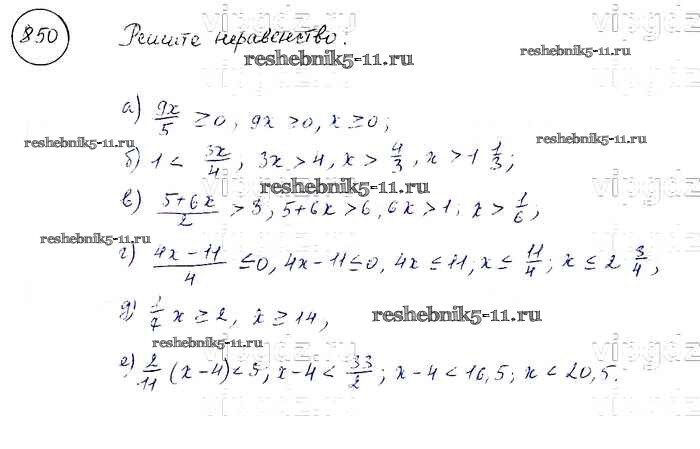 850 Решите неравенство:
reshebnik5-11.ru
reshebnik5-11.ru
а) 9x/5 ≥ 0, 9x ≥ 0, x ≥ 0;
reshebnik5-11.ru
reshebnik5-11.ru
б) 1 < 3x/4, 3x > 4, x > 4/3, x > 1 1/3;
reshebnik5-11.ru
в) (5+6x)/2 > 3, 5+6x > 6, 6x > 1, x > 1/6;
reshebnik5-11.ru
reshebnik5-11.ru
г) (4x-11)/4 ≤ 0, 4x-11 ≤ 0, 4x ≤ 11, x ≤ 11/4; x ≤ 2 3/4,
д) 1/7 x ≥ 2, x ≥ 14,
reshebnik5-11.ru
reshebnik5-11.ru
reshebnik5-11.ru
е) 2/11 (x-4) < 3; x-4 < 33/2; x-4 < 16,5; x < 20,5.
vipgdz.ru